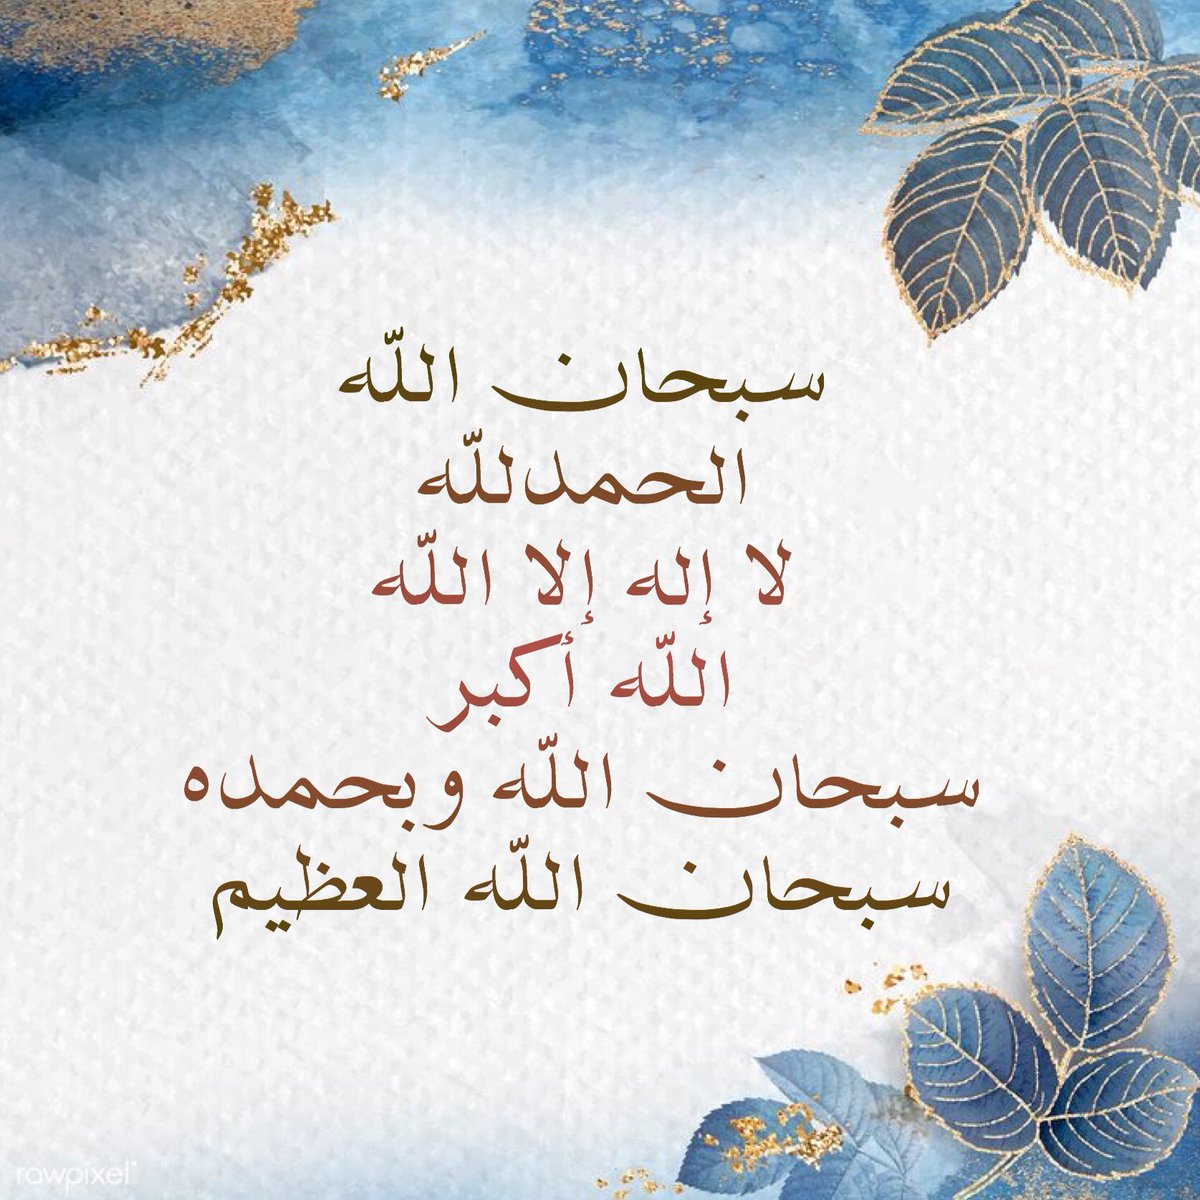 سبحان الله
الحمدلله
لا إله إلا الله
الله أكبر
سبحان الله وبحمده
سبحان الله العظيم
rawpixel